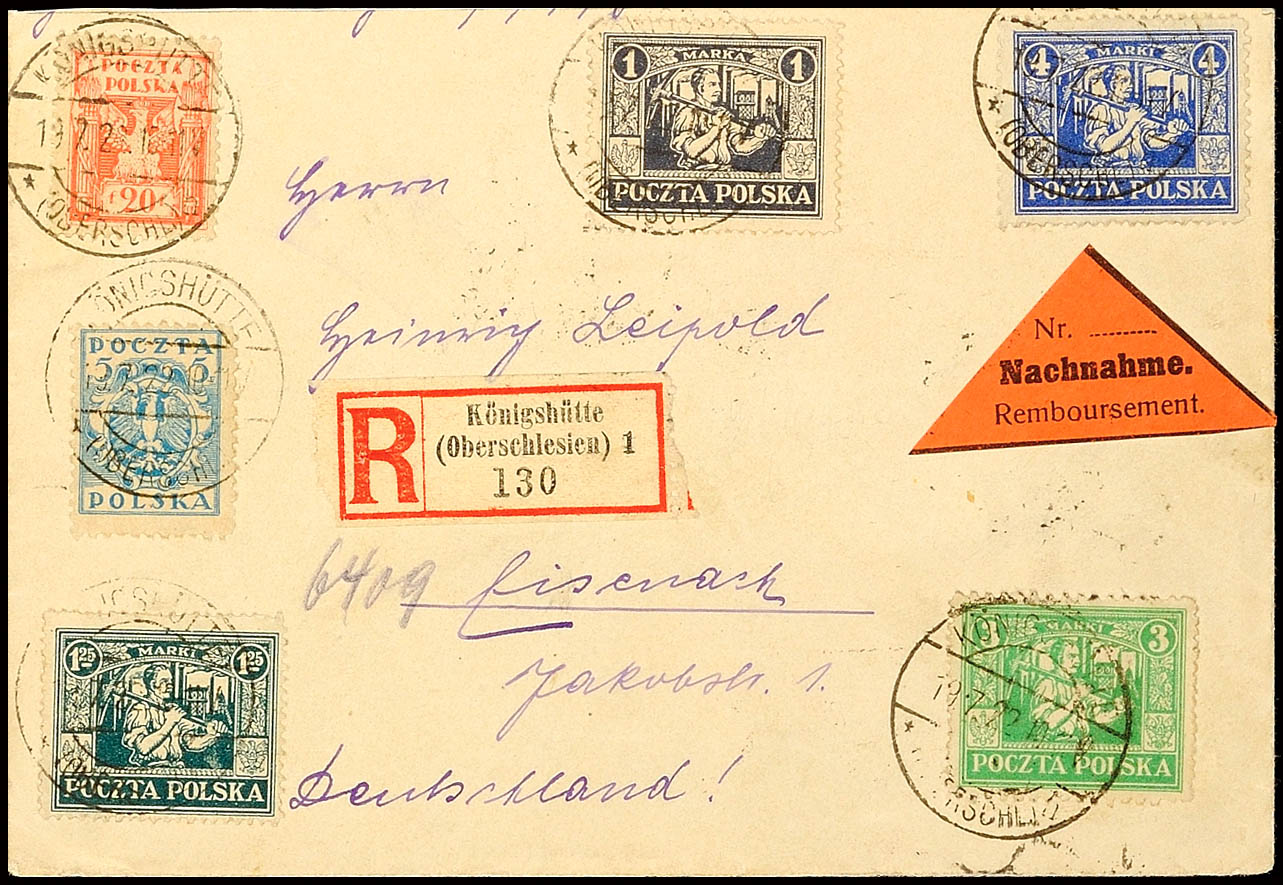 KÖNIGSHÜTTE
POCZTA
POLSKA
f 20 f
19.7.22
* (OBERSCHL.)
MARKA
1 1
POCZTA POLSKA
MARKI
4 4
POCZTA POLSKA
* (OBERSCHL.)
Herrn
Heinrich Leipold
Nr. ..........
Nachnahme.
Remboursement.
KÖNIGSHÜTTE
POCZTA
5 5
19.7.22
POLSKA
* (OBERSCHL.)
R
Königshütte
(Oberschlesien) 1
130
6409 Eisenach
Jakobstr. 1.
Deutschland!
MARKI
1 25 1 25
POCZTA POLSKA
MARKI
3
19.7.22
POCZTA POLSKA